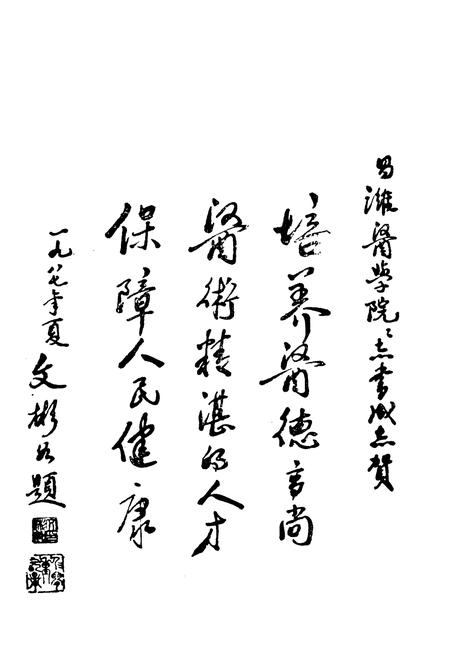 昌濰醫學院院志書成志賀
培养醫德高尚
醫術精湛的人才
保障人民健康
一九八七年夏
文彬 題